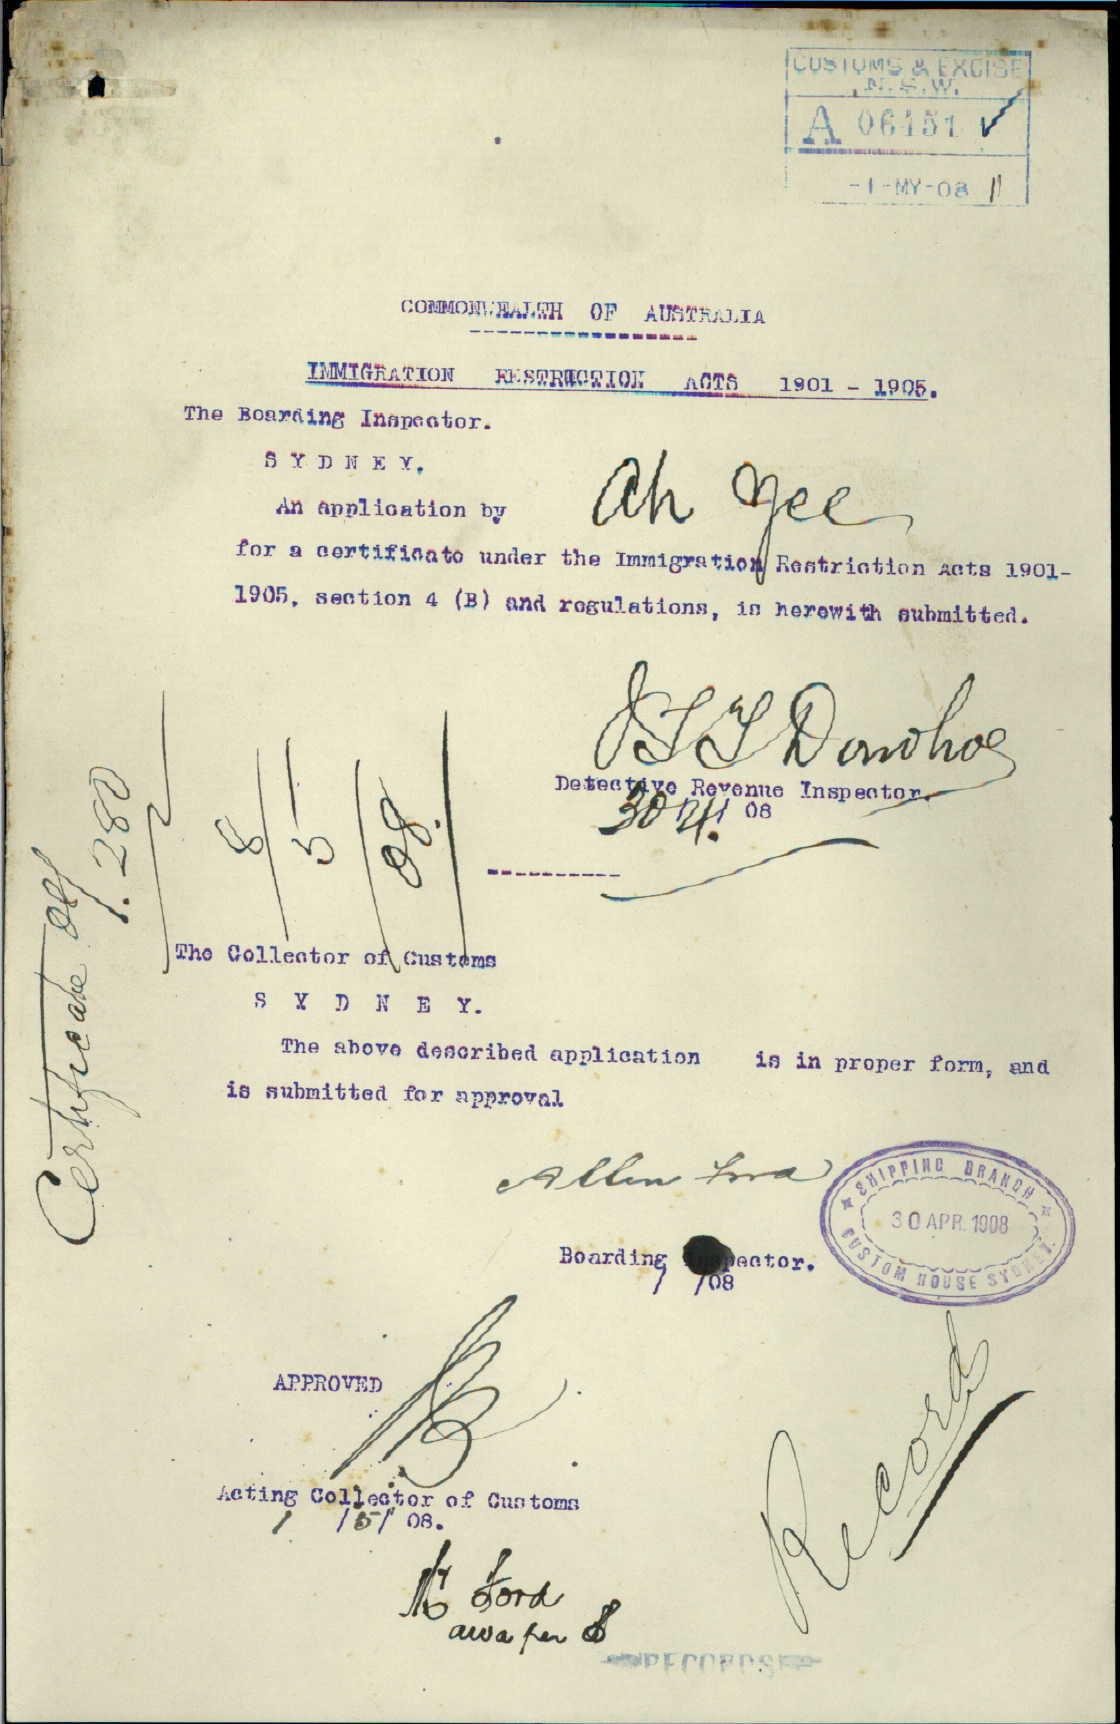 CUSTOMS & EXCISE
N.S.W.
A 06151 ✓
-1-MY-08
COMMONWEALTH OF AUSTRALIA
IMMIGRATION RESTRICTION ACTS 1901 - 1905.
The Boarding Inspector.
SYDNEY.
An application by Ah Yee
for a certificate under the Immigration Restriction Acts 1901-
1905, section 4 (B) and regulations, is herewith submitted.
Donohoe
Detective Revenue Inspector.
30/4/08
8/5/08.
Certificate
280
The Collector of Customs
SYDNEY.
The above described application is in proper form, and
is submitted for approval
Allen
Boarding Inspector.
/ /08
SHIPPING BRANCH
30 APR. 1908
CUSTOM HOUSE SYDNEY.
APPROVED
Acting Collector of Customs
1/5/08.
Record
Ford
RECORDS